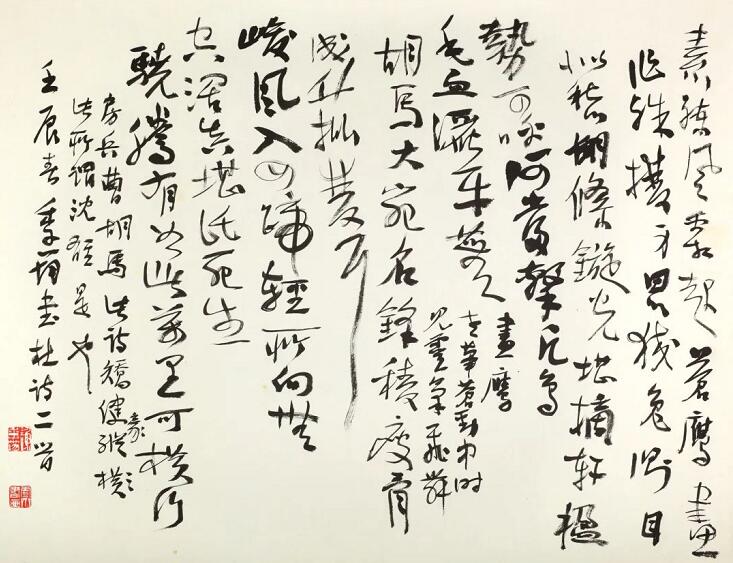 素練風霜起蒼鷹畫
作殊㩳身思狡兔側目
似愁胡絛鏇光堪摘軒楹
勢可呼何當擊凡鳥
毛血灑平蕪
畫鷹
老筆蒼勁中時
見靈氣飛舞
胡馬大宛名鋒稜瘦骨
成竹批雙耳
峻風入四蹄輕所向無
空闊真堪託死生
驍騰有如此萬里可橫行
房兵曹胡馬此詩矯健豪縱橫
此所謂沈雄是也
壬辰春季書杜詩二首